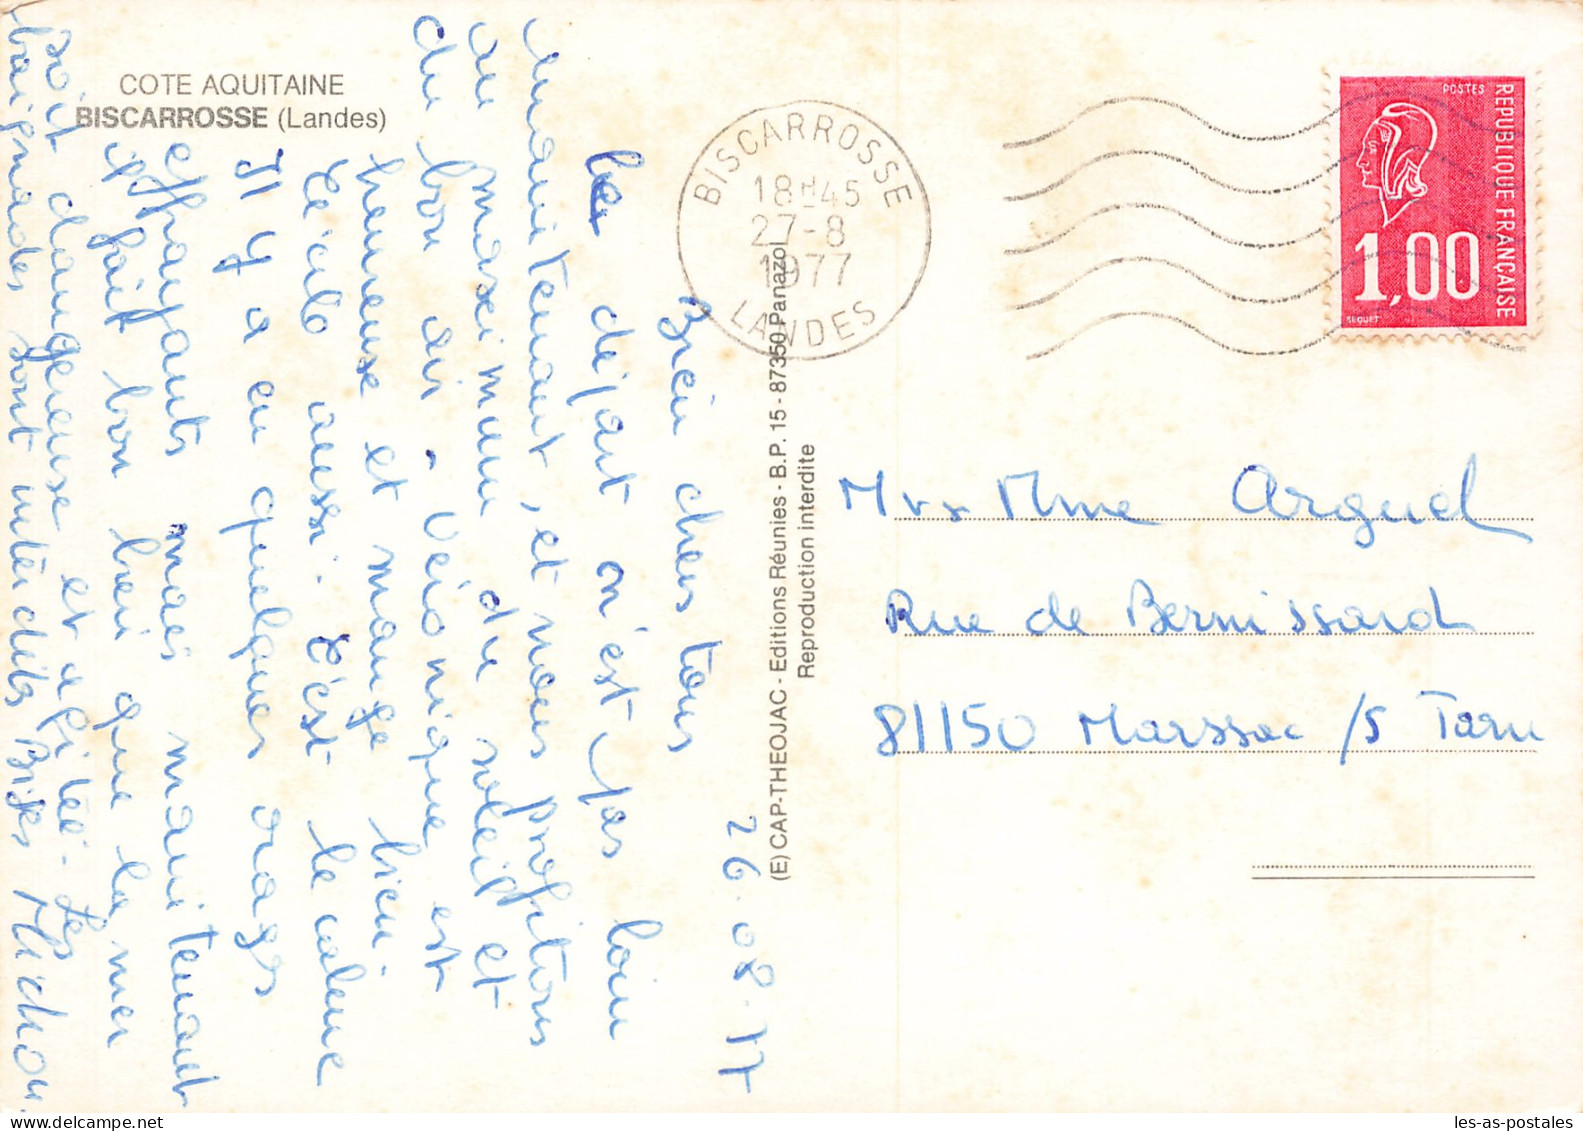 COTE AQUITAINE
BISCARROSSE (Landes)
26.08.77
Bien chers tous
le départ n'est pas loin
maintenant, et nous profitons
au maximum du soleil et
du bon air - Véronique est
heureuse et mange bien
Cécile aussi. C'est le calme
Il y a eu quelques orages
effrayants mais maintenant
il fait bon bien que la mer
soit dangereuse et agitée - Les
baignades sont interdites Bises Michou.
(E) CAP-THEOJAC - Editions Réunies - B.P. 15 - 87350 Panazol
Reproduction interdite
BISCARROSSE
18H45
27-8
1977
LANDES
POSTES
REPUBLIQUE FRANÇAISE
1,00
BEQUET
Mr & Mme Arguel
Rue de Bernissard
81150 Marssac /s Tarn
les-as-postales